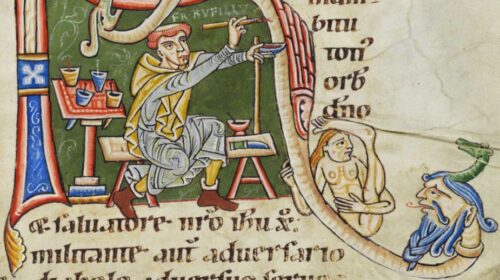 FR RVFILLV
bitu
ton᾽
orb
dño
saluatore nr̄o ihu x̄.
militante aut aduersario